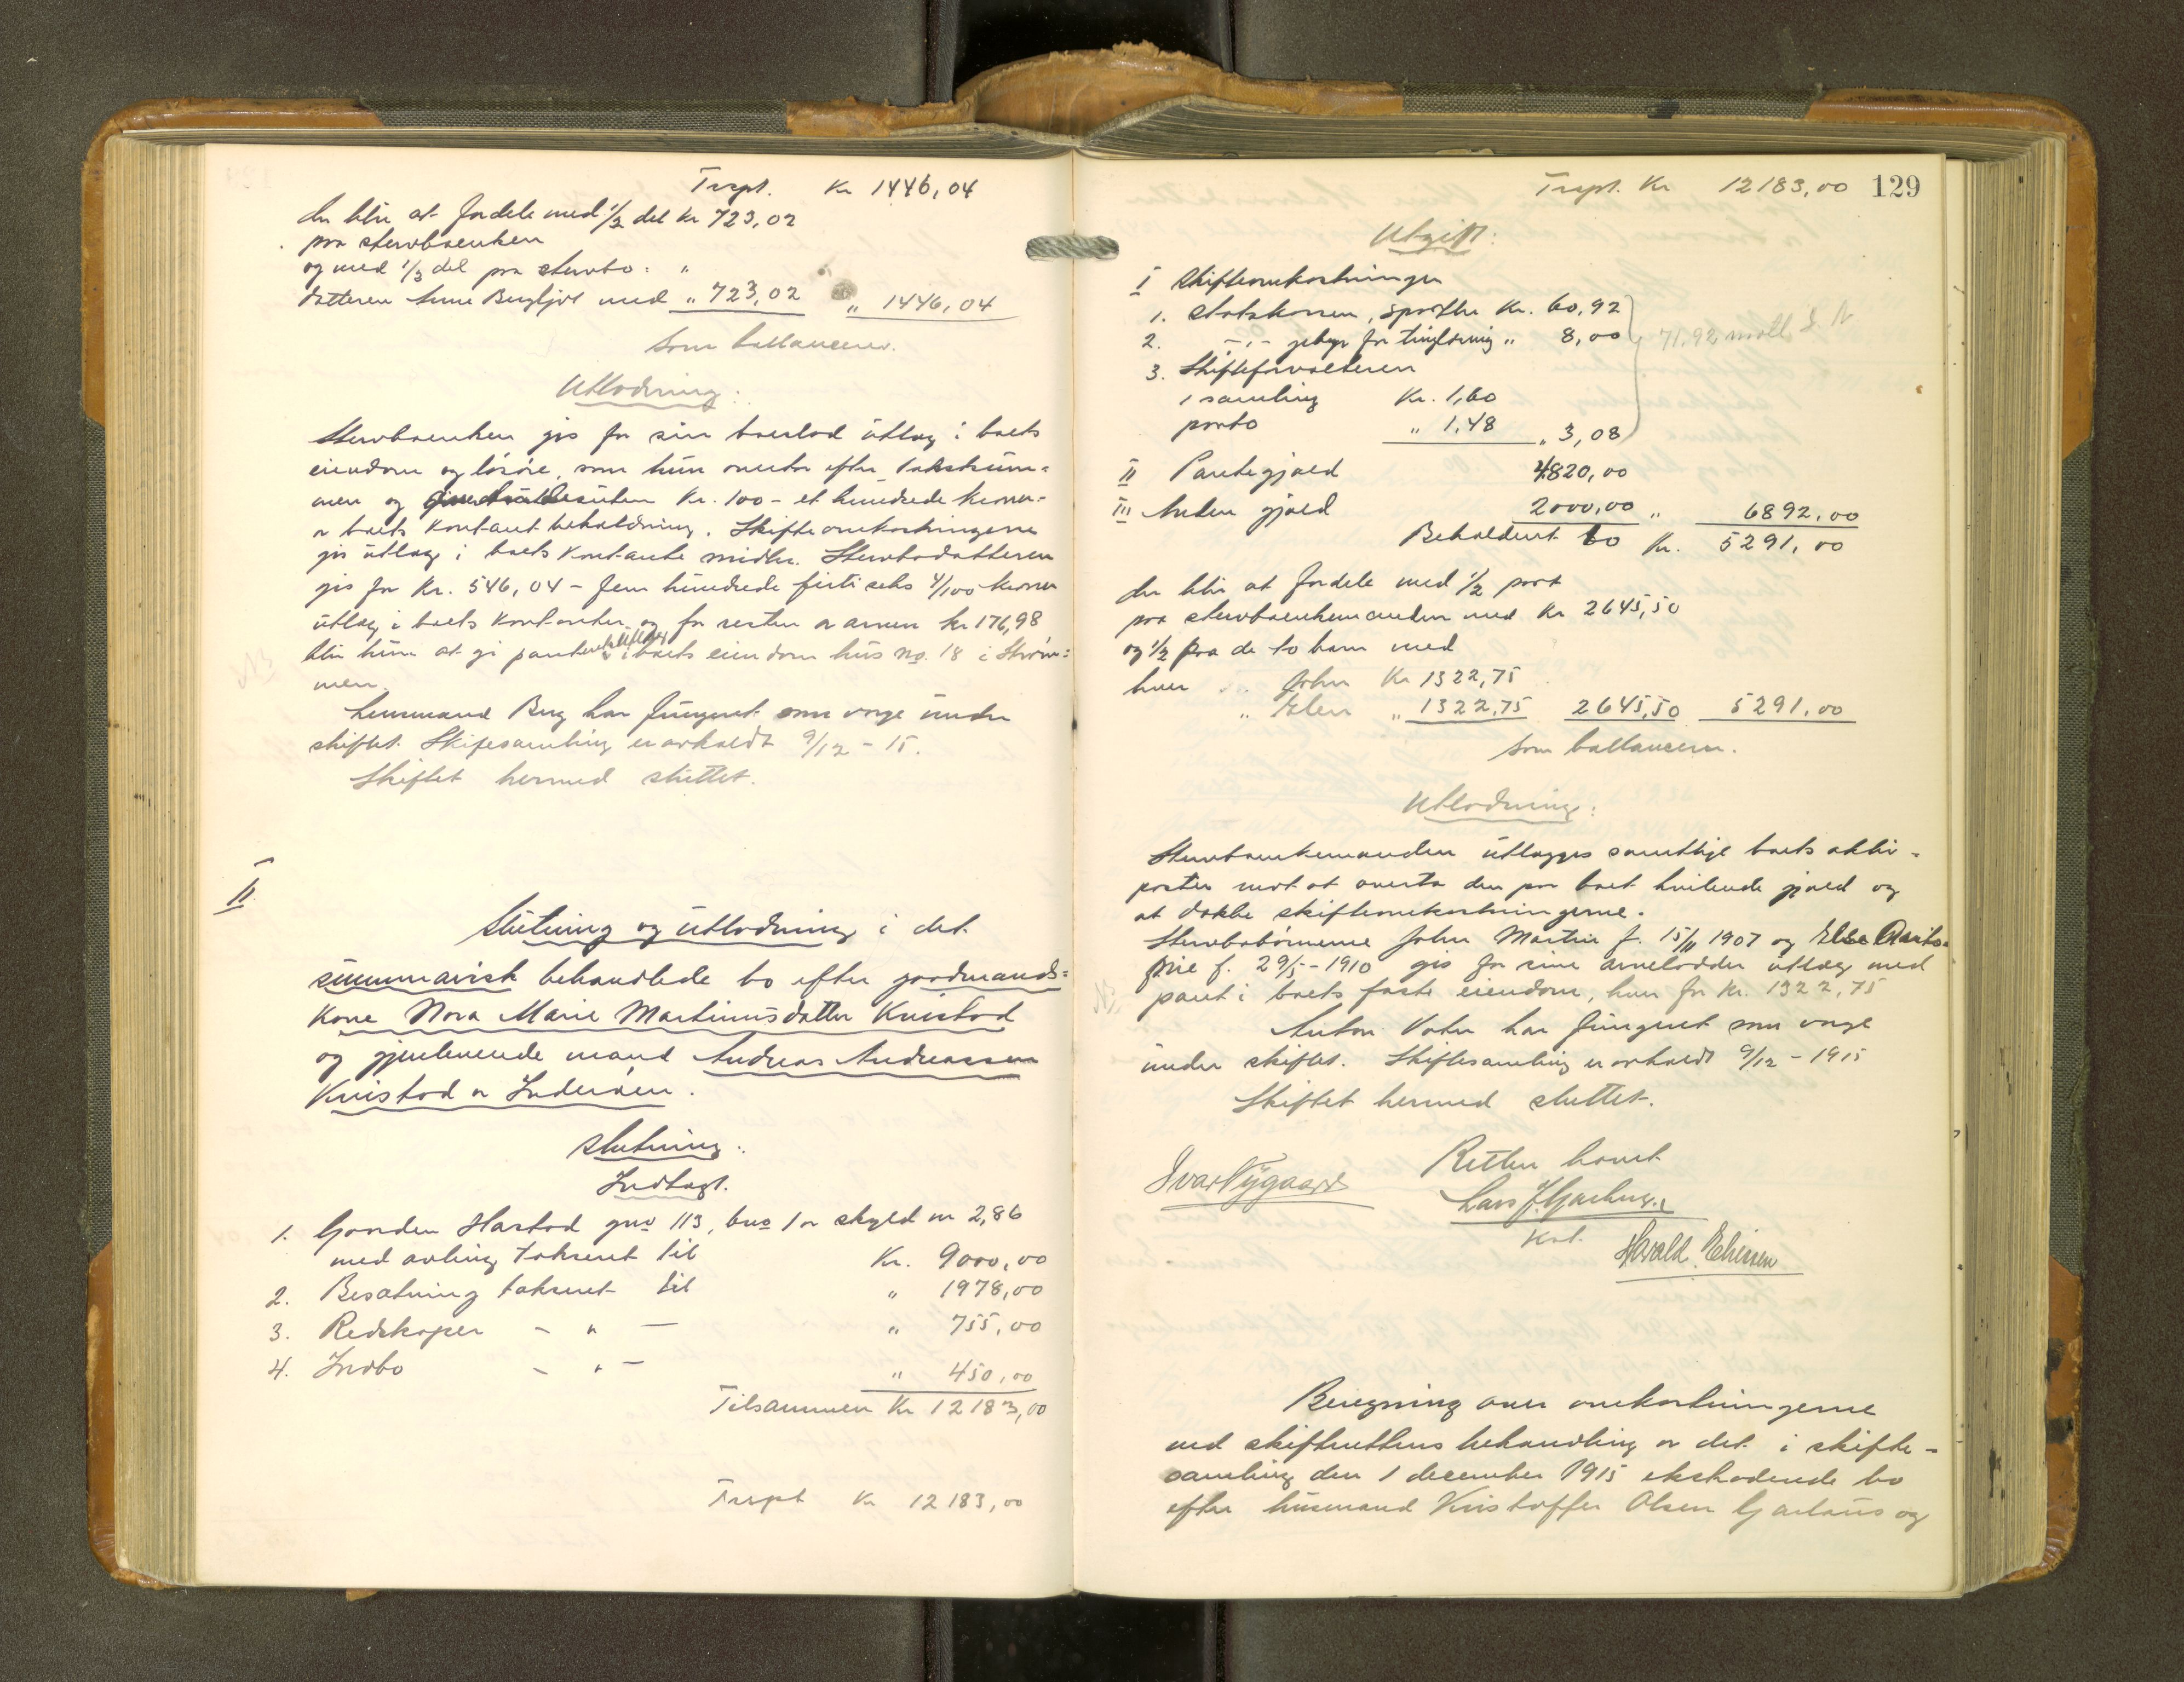 Trspt. Kr 1446,04
der blir at fordele med 1/2 del Kr 723,02
paa stervboenken
og med 1/2 del paa stervbo: "
datteren Anne Bergljot med " 723,02 " 1446,04
som ballancerer.
Utlodning:
Stervboenken gis for sin boeslod utlæg i boets
eiendom og løsøre, som hun overtar efter takstsum=
men og Kr. 100 - et hundrede kroner
av boets kontantbeholdning. Skifteomkostningerne
gis utlæg i boets kontante midler. Stervbodatteren
gis for Kr. 546,04 - fem hundrede firti seks 4/100 kroner
utlæg i boets kontanter og for resten av arven kr 176,98
blir hun at gi panteutlæg i boets eiendom hus no. 18 i Strøm=
men.
Lensmand Berg har fungert som verge under
skiftet. Skiftesamling er avholdt 9/12 - 15.
Skiftet hermed sluttet.
II.
Slutning og utlodning i det
summarisk behandlede bo efter gaardmands=
kone Nora Marie Martinusdatter Kvistad
og gjenlevende mand Andreas Andreassen
Kvistad av Inderøen.
Slutning:
Indtægt.
1. Gaarden Hastad gno 113, bno 1 av skyld m 2,86
med avling takseret til Kr. 9000,00
2. Besætning takseret til " 1978,00
3. Redskaper - " - " 755,00
4. Indbo - " - " 450,00
Tilsammen Kr 12183,00
Trspt Kr 12183,00
Trspt. Kr 12183,00 129
Utgift:
I Skifteomkostninger
1. Statskassen, sportler Kr. 60,92
2. -"- gebyr for tinglæsning " 8,00 71,92 mott. I. N
3. Skifteforvalteren
1 samling Kr. 1,60
porto " 1,48 " 3,08
II Pantegjæld 4820,00
III Anden gjæld 2000,00 " 6892,00
Beholdent bo Kr. 5291,00
der blir at fordele med 1/2 part
paa stervboenkemanden med Kr 2645,50
og 1/2 paa de to barn med
hver John Kr 1322,75
" Else " 1322,75 2645,50 5291,00
som ballancerer.
Utlodning:
Stervboenkemanden utlægges samtlige boets aktiv-
poster mot at overta den paa boet hvilende gjæld og
at dække skifteomkostningerne.
Stervbobørnene John Martin f. 15/11 1907 og Else
f. 29/5 - 1910 gis for sine arvelodder utlæg med
pant i boets faste eiendom, hver for Kr. 1322,75
Anton Vater har fungeret som verge
under skiftet. Skiftesamling er avholdt 9/12 - 1915
Skiftet hermed sluttet.
Retten hævet
Ivar Nygaard
Lars J.
Kst. Harald
Beregning over omkostningerne
ved skifterettens behandling av det i skifte-
samling den 1 december 1915 ekstraderede bo
efter husmand Kristoffer Olsen og